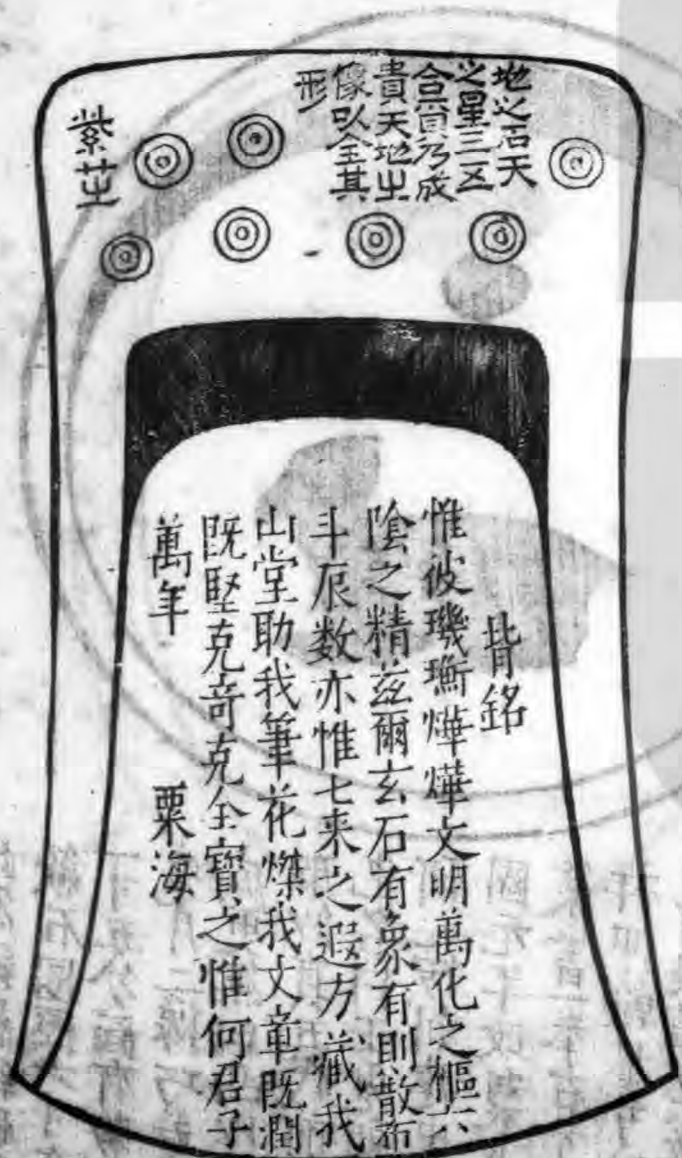 地之石天
之星三五
合質乃成
貴天地之
像以全其
形
紫芝
背銘
惟彼璣衡燁燁文明萬化之樞六
陰之精茲爾玄石有象有則散布
斗辰数亦惟七来之遐方藏我
山堂助我筆花燦我文章既潤
既堅克奇克全寶之惟何君子
萬年
粟海